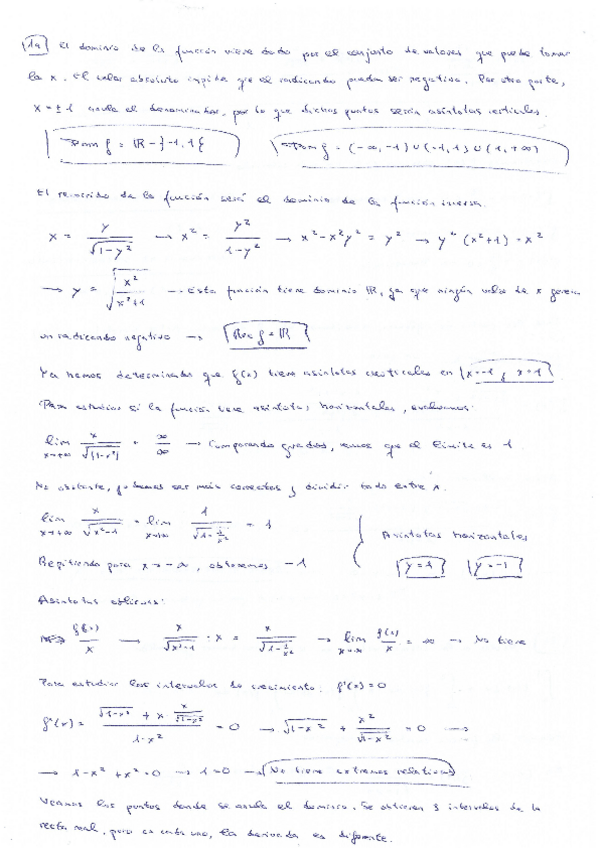 1a El dominio de la función viene dado por el conjunto de valores que puede tomar
la x. El valor absoluto impide que el radicando pueda ser negativo. Por otra parte,
x = ±1 anula el denominador, por lo que dichos puntos serán asíntotas verticales.
Dom f = ℝ - }-1, 1{ Dom f = (-∞, -1) ∪ (-1, 1) ∪ (1, +∞)
El recorrido de la función será el dominio de la función inversa.
x = y/√(1-y²) → x² = y²/(1-y²) → x² - x²y² = y² → y²(x²+1) = x²
→ y = √(x²/(x²+1)) → Esta función tiene dominio ℝ, ya que ningún valor de x genera
un radicando negativo → Rec f = ℝ
Ya hemos determinado que f(x) tiene asíntotas verticales en x=-1 y x=1
Para estudiar si la función tiene asíntotas horizontales, evaluamos:
lim x→+∞ x/√(|1-x²|) = ∞/∞ → Comparando grados, vemos que el límite es 1.
No obstante, podemos ser más correctos y dividir todo entre x.
lim x→+∞ x/√(x²-1) = lim x→+∞ 1/√(1-1/x²) = 1
Repitiendo para x→-∞, obtenemos -1
Asíntotas horizontales
y=1 y=-1
Asíntotas oblicuas:
f(x)/x → x/√(x²-1) · x = x/√(1-1/x²) → lim x→∞ f(x)/x = ∞ → No tiene
Para estudiar los intervalos de crecimiento: f'(x)=0
f'(x) = (√(1-x²) + x x/√(1-x²))/(1-x²) = 0 → √(1-x²) + x²/√(1-x²) = 0 →
→ 1-x²+x²=0 → 1=0 → No tiene extremos relativos
Veamos los puntos donde se anula el dominio. Se obtienen 3 intervalos de la
recta real, pero en cada uno, la derivada es diferente.